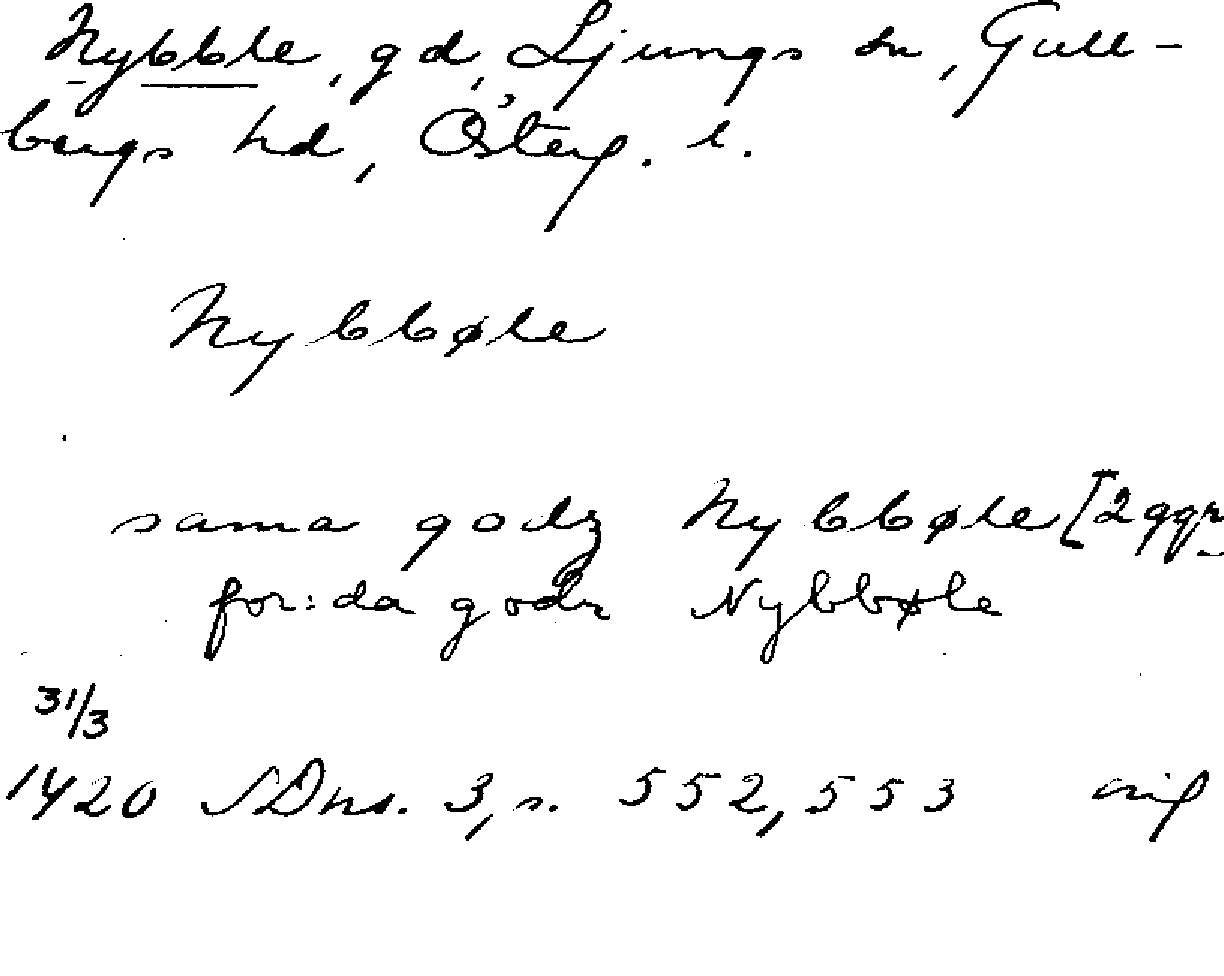 Nybble, gd, Ljungs sn, Gull-
bergs hd, Österg. l.
Nybbøle
sama godz Nybbøle [2 ggr
for:da godz Nybbøle
31/3
1420 SDns. 3, s. 552, 553 orig